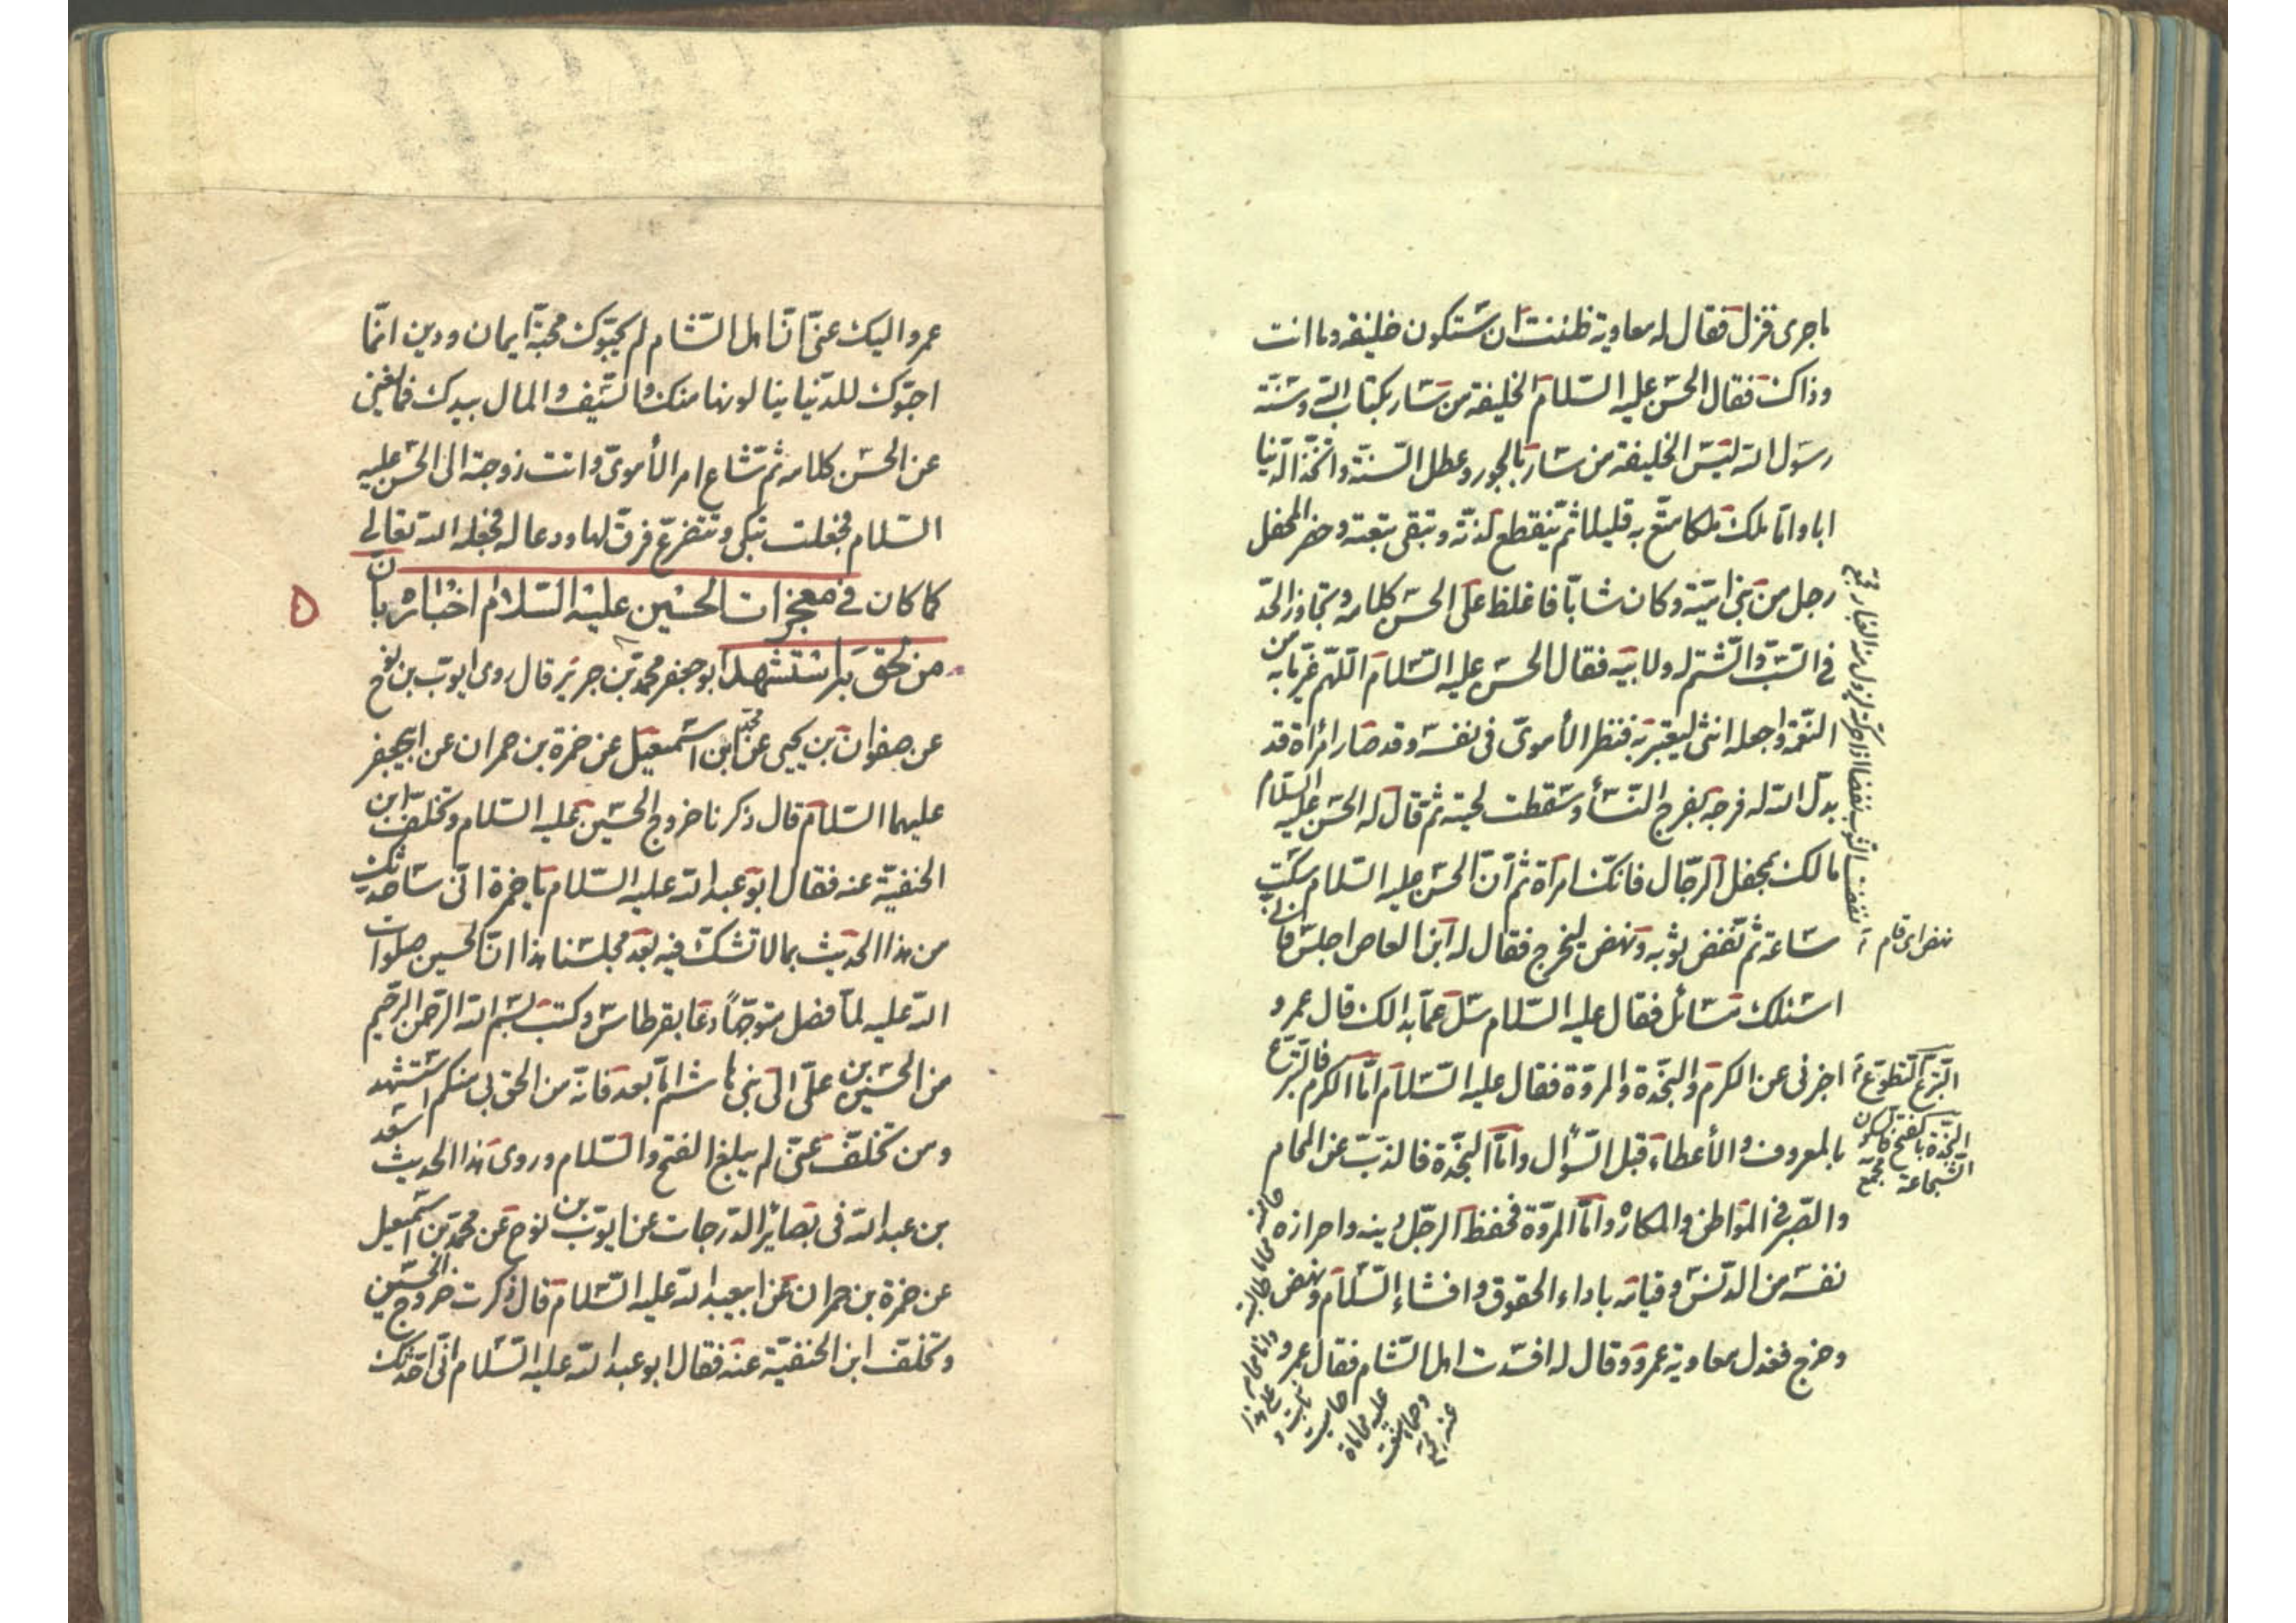 ما جرى فنزل فقال له معاوية ظننت ان ستكون خليفة وما انت
وذاك فقال الحسن عليه السلام الخليفة من سار بكتاب الله وسنة
رسول الله ليس الخليفة من سار بالجور وعطل السنة واتخذ الدنيا
ابا واما ملك ملكا متع به قليلا ثم ينقطع لذته وتبقى تبعته وحضر المحفل
رجل من بني امية وكان شابا فاغلظ على الحسن كلامه وتجاوز الحد
في السب والشتم له ولابيه فقال الحسن عليه السلام اللهم غير ما به من
النعمة واجعله انثى ليعتبر به فنظر الأموى فى نفسه وقد صار امرأة قد
بدل الله له فرجه بفرج النساء وسقطت لحيته ثم قال له الحسن عليه السلام
مالك بمحفل الرجال فانك امرأة ثم ان الحسن عليه السلام سكت
ساعة ثم نفض ثوبه ونهض ليخرج فقال له ابن العاص اجلس فانى
اسئلك مسائل فقال عليه السلام سل عما بدا لك قال عمرو
اخبرنى عن الكرم والنجدة والمروة فقال عليه السلام اما الكرم فالتبرع
بالمعروف والأعطاء قبل السؤال واما النجدة فالذب عن المحارم
والصبر في المواطن والمكاره واما المروة فحفظ الرجل دينه واحرازه
نفسه من الدنس وقيامه باداء الحقوق وافشاء السلام ونهض
وخرج فعذل معاوية عمرو وقال له افسدت اهل الشام فقال عمرو
نفضت الثوب نفضا اذا حركته ليزول منه الغبار
نهض اى قام
التبرع التطوع
النجدة بالفتح فالسكون
الشجاعة مجمع
عمرو اليك عنى ان اهل الشام لم يحبوك محبة ايمان ودين انما
احبوك للدنيا ينالونها منك والسيف والمال بيدك فما يغنى
عن الحسن كلامه ثم شاع امر الأموى واتت زوجته الى الحسن عليه
السلام فجعلت تبكى وتتضرع فرق لها ودعا له فجعله الله تعالى
كما كان في معجزات الحسين عليه السلام اخباره بان
من لحق به استشهد ابو جعفر محمد بن جرير قال روى ايوب بن نوح
عن صفوان بن يحيى عن محمد ابن اسمعيل عن حمزة بن حمران عن ابيجعفر
عليهما السلام قال ذكرنا خروج الحسين عليه السلام وتخلف ابن
الحنفية عنه فقال ابو عبد الله عليه السلام يا حمزة انى ساحدثك
من هذا الحديث بما لا تشك فيه بعد مجلسنا هذا ان الحسين صلوات
الله عليه لما فصل متوجها دعا بقرطاس وكتب بسم الله الرحمن الرحيم
من الحسين بن على الى بنى هاشم اما بعد فانه من الحق بى منكم استشهد
ومن تخلف عنى لم يبلغ الفتح والسلام وروى هذا الحديث سعد
بن عبد الله فى بصائر الدرجات عن ايوب بن نوح عن محمد بن اسمعيل
عن حمزة بن حمران عن ابيعبد الله عليه السلام قال ذكرت خروج الحسين
وتخلف ابن الحنفية عنه فقال ابو عبد الله عليه السلام انى احدثك